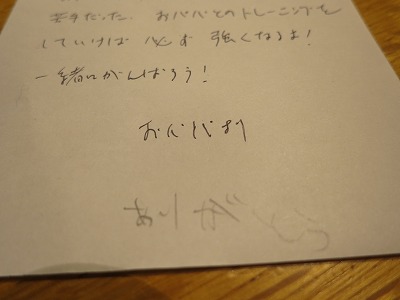 苦手だった。おババとのトレーニングを
していけば必ず強くなるよ!
一緒にがんばろう!
おババより
ありがとう